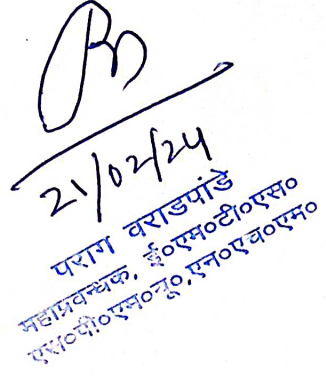 21/02/24
पराग वराडपांडे
महाप्रबन्धक, ई०एम०टी०एस०
एस०पी०एम०यू०,एन०एच०एम०